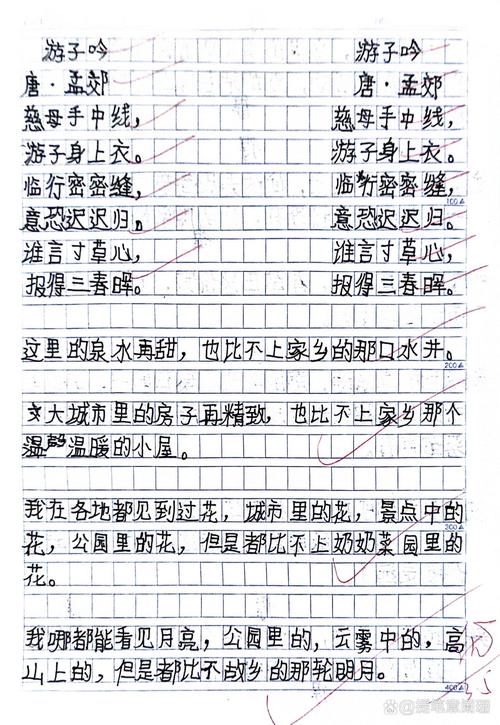 游子吟
唐·孟郊
慈母手中线，
游子身上衣。
临行密密缝，
意恐迟迟归。
谁言寸草心，
报得三春晖。
游子吟
唐·孟郊
慈母手中线，
游子身上衣。
临行密密缝，
意恐迟迟归。
谁言寸草心，
报得三春晖。
100△
这里的泉水再甜，也比不上家乡的那口水井。
200△
大城市里的房子再精致，也比不上家乡那个
温暖的小屋。
我在各地都见到过花，城市里的花，景点中的
300△
花，公园里的花，但是都比不上奶奶菜园里的
花。
我哪都能看见月亮，公园里的，云雾中的，高
山上的，但是都比不故乡的那轮明月。
400△